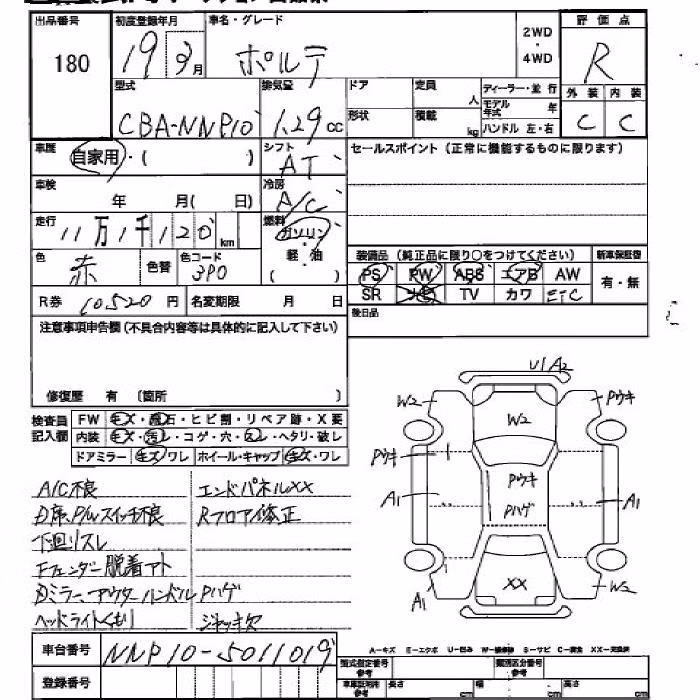 出品番号 初度登録年月 車名・グレード 2WD ・ 4WD 評価点
180 19 3月 ポルテ R
型式 排気量 ドア 定員 人 ディーラー・並行 外装 内装
CBA-NNP10 1.29 cc 形状 積載 kg モデル年式 年 C C
ハンドル 左・右
車歴 自家用・( ) シフト AT セールスポイント (正常に機能するものに限ります)
車検 年 月( 日) 冷房 A/C
走行 11万1千120 km 燃料 ガソリン・軽・油 ( )
色 赤 色替 色コード 3P0
装備品 (純正品に限り○をつけてください) 新車保証書
PS PW ABS エアB AW 有・無
SR TV カワ ETC
R券 10520円 名変期限 月 日 後日品
注意事項申告欄 (不具合内容等は具体的に記入して下さい)
修復歴 有 〔箇所 〕
検査員記入欄 FW キズ・飛石・ヒビ割・リペア跡・X要
内装 キズ・汚レ・コゲ・穴・ヘタリ・破レ
ドアミラー キズ ワレ ホイール・キャップ キズ・ワレ
A/C不良 エンドパネルXX
D席P/Wスイッチ不良 Rフロア修正
下回リスレ
Fフェンダー脱着アト
Dミラー、アウターハンドルPハゲ
ヘッドライトくもり ジャッキ欠
U/A2
W2 W2 Pウキ
Pウキ
Pウキ
A1 Pハゲ A1
XX
A1 W2
車台番号 NNP10-5011019
A-キズ E-エクボ U-凹み S-サビ XX-交換済
登録番号 型式指定番号 参考 類別区分番号 参考
参考 長さ cm 幅 cm 高さ cm